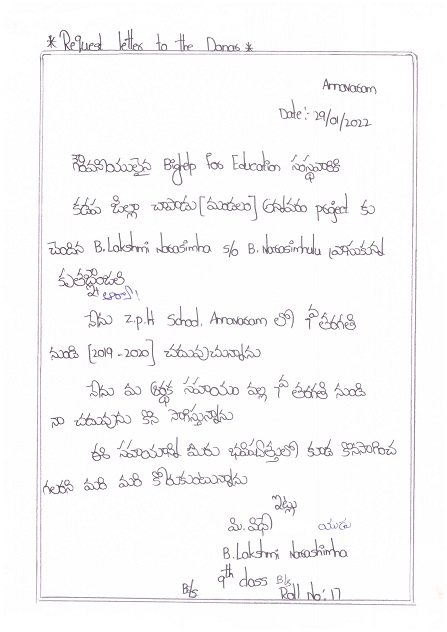 * Request letter to the Donors *
Annavaram
Date:- 29/01/2022
గౌరవనియులైన Bighelp For Education సంస్థవారికి
కడప జిల్లా చాపాడు [మండలం] అన్నవరం project కు
చెందిన B.Lakshmi Narasimha s/o B. Narasimhulu వ్రాసుకున్న
కృతజ్ఞతలు
నేను Z.P.H School, Annavaram లో తరగతి
నుండి [2019 - 2020] చదువుచున్నాను
నేను మీ ఆర్థిక సహాయం వల్ల తరగతి నుండి
నా చదువును కొన సాగిస్తున్నాను
ఈ సహాయాన్ని మీరు భవిష్యత్తులో కూడ కొనసాగించ
గలరని మరి మరి కోరుకుంటున్నాను
ఇట్లు
మీ విధే యుడు
B.Lakshmi Narashimha
9th class B/s
B/s Roll No: 17